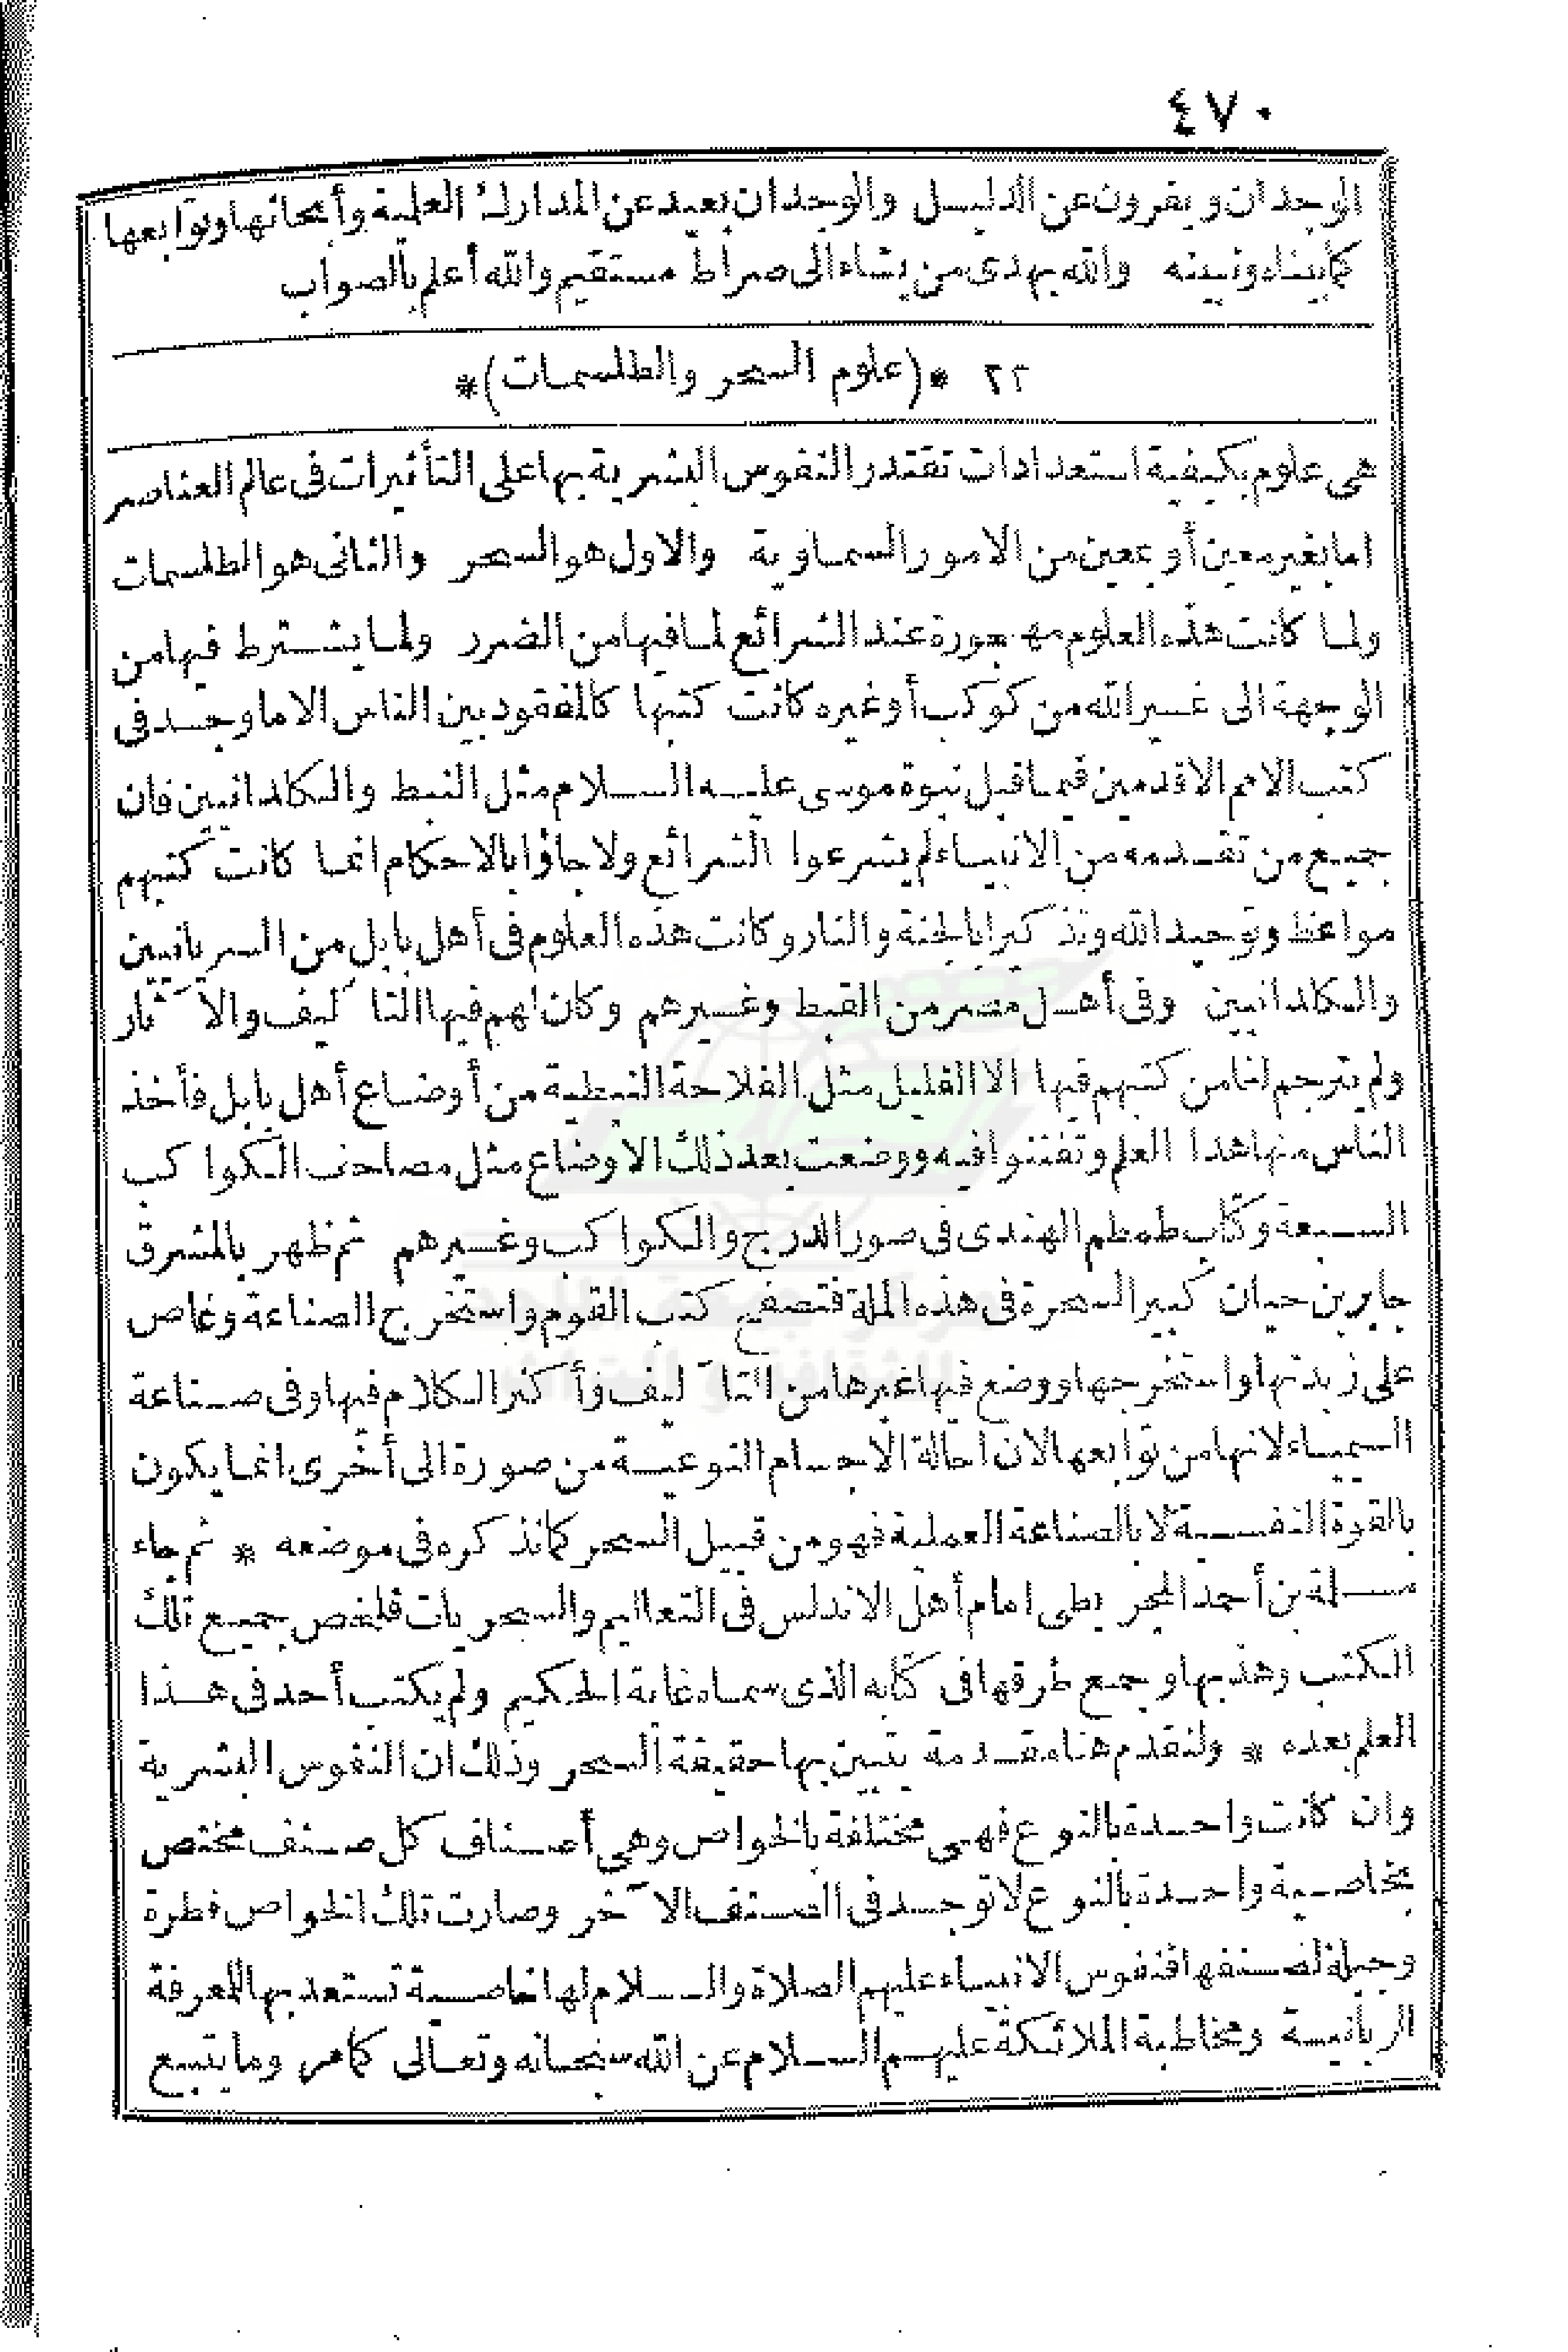 ٤٧٠
الوجدان ويفرون عن الدليل والوجدان بعيد عن المدارك العلمية وأبحاثها وتوابعها
كما بيناه ونبينه والله يهدى من يشاء الى صراط مستقيم والله أعلم بالصواب
٢٢ *(علوم السحر والطلسمات)*
هى علوم بكيفية استعدادات تقتدر النفوس البشرية بها على التأثيرات فى عالم العناصر
اما بغير معين أو بمعين من الامور السماوية والاول هو السحر والثانى هو الطلسمات
ولما كانت هذه العلوم مهجورة عند الشرائع لما فيها من الضرر ولما يشترط فيها من
الوجهة الى غير الله من كوكب أو غيره كانت كتبها كالمفقود بين الناس الا ما وجد فى
كتب الامم الاقدمين فيما قبل نبوة موسى عليه السلام مثل النبط والكلدانيين فان
جميع من تقدمه من الانبياء لم يشرعوا الشرائع ولا جاؤا بالاحكام انما كانت كتبهم
مواعظ وتوحيد الله وتذكيرا بالجنة والنار وكانت هذه العلوم فى أهل بابل من السريانيين
والكلدانيين وفى أهل مصر من القبط وغيرهم وكان لهم فيها التآليف والآثار
ولم يترجم لنا من كتبهم فيها الا القليل مثل الفلاحة النبطية من أوضاع أهل بابل فأخذ
الناس منها هذا العلم وتفننوا فيه ووضعت بعد ذلك الاوضاع مثل مصاحف الكواكب
السبعة وكتاب طمطم الهندى فى صور الدرج والكواكب وغيرهم ثم ظهر بالمشرق
جابر بن حيان كبير السحرة فى هذه الملة فتصفح كتب القوم واستخرج الصناعة وغاص
على زبدتها واستخرجها ووضع فيها غيرها من التآليف وأكثر الكلام فيها وفى صناعة
السيمياء لانها من توابعها لان احالة الاجسام النوعية من صورة الى أخرى انما يكون
بالقوة النفسية لا بالصناعة العملية فهو من قبيل السحر كما نذكره فى موضعه * ثم جاء
مسلمة بن أحمد المجريطى امام أهل الاندلس فى التعاليم والسحريات فلخص جميع تلك
الكتب وهذبها وجمع طرقها فى كتابه الذى سماه غاية الحكيم ولم يكتب أحد فى هذا
العلم بعده * ولنقدم هنا مقدمة يتبين بها حقيقة السحر وذلك ان النفوس البشرية
وان كانت واحدة بالنوع فهى مختلفة بالخواص وهى أصناف كل صنف مختص
بخاصية واحدة بالنوع لا توجد فى الصنف الآخر وصارت تلك الخواص فطرة
وجبلة لصنفها فنفوس الانبياء عليهم الصلاة والسلام لها خاصية تستعد بها للمعرفة
الربانية ومخاطبة الملائكة عليهم السلام عن الله سبحانه وتعالى كما مر وما يتبع